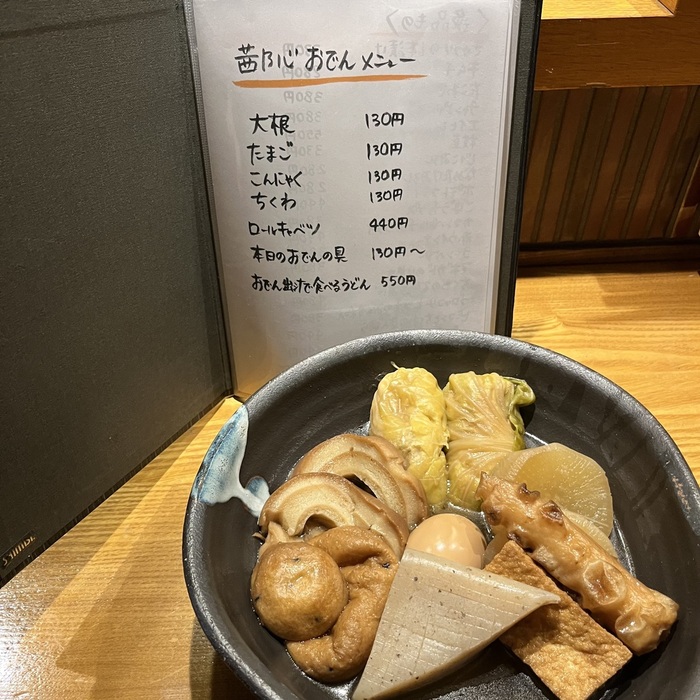 茜乃心 おでんメニュー
大根 130円
たまご 130円
こんにゃく 130円
ちくわ 130円
ロールキャベツ 440円
本日のおでんの具 130円～
おでん出汁で食べるうどん 550円